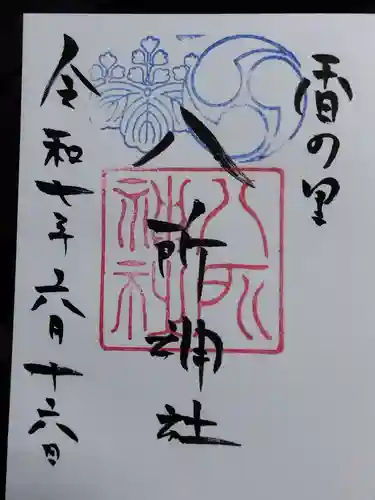 暦の里
八所神社
八所神社
令和七年六月十六日